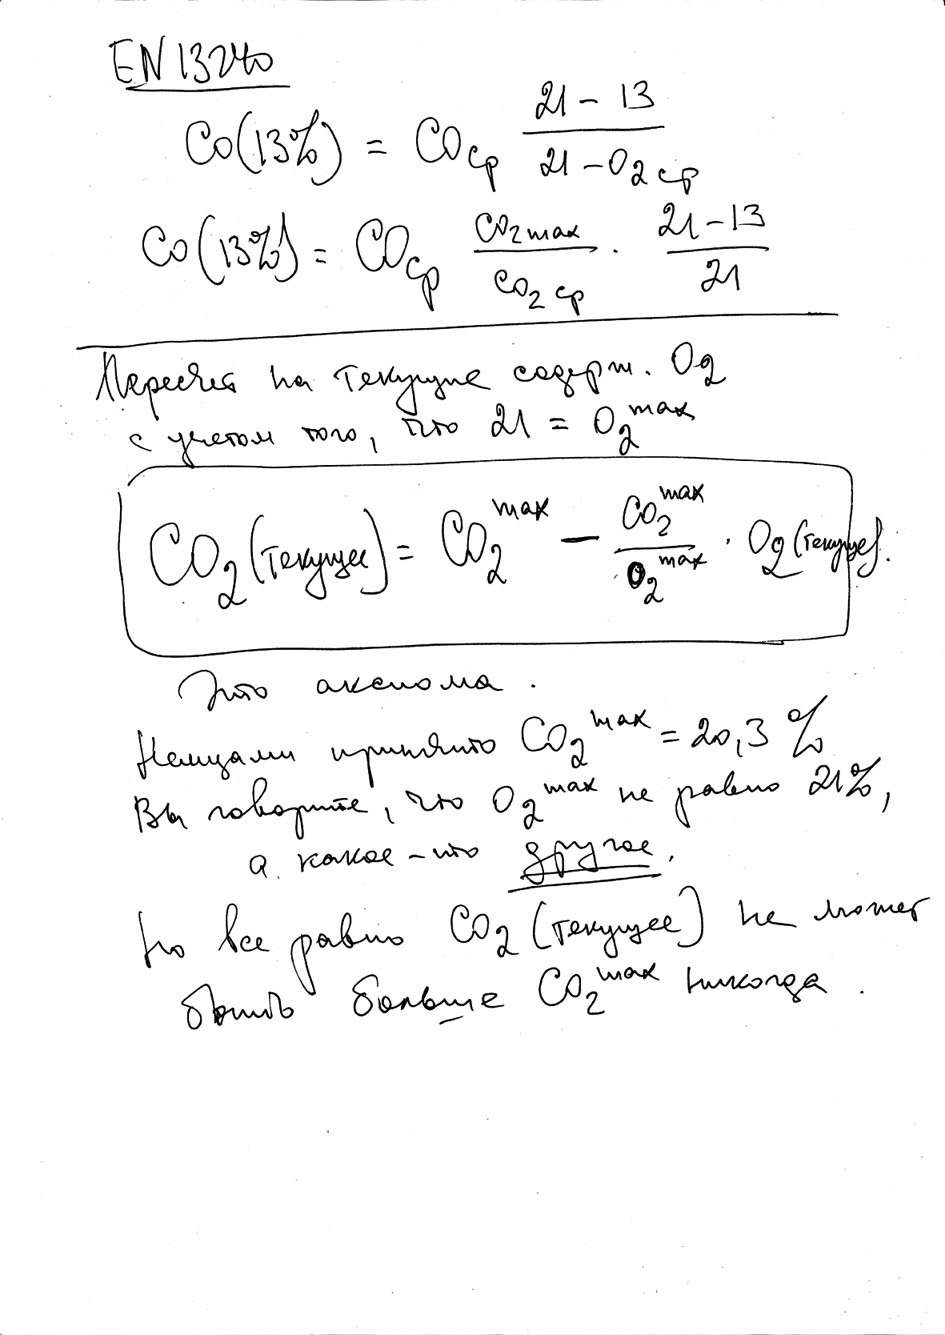 EN 13240
CO(13%) = COср (21 - 13)/(21 - O₂ ср)
CO(13%) = COср CO₂max/CO₂ ср · (21-13)/21
Пересчет на текущие содерж. O₂
с учетом того, что 21 = O₂^max
CO₂(текущее) = CO₂^max - CO₂^max/O₂^max · O₂(текущее).
Это аксиома.
Немцами принято CO₂^max = 20,3 %
Вы говорите, что O₂^max не равно 21%,
а какое-то другое.
Но все равно CO₂(текущее) не может
быть больше CO₂^max никогда.